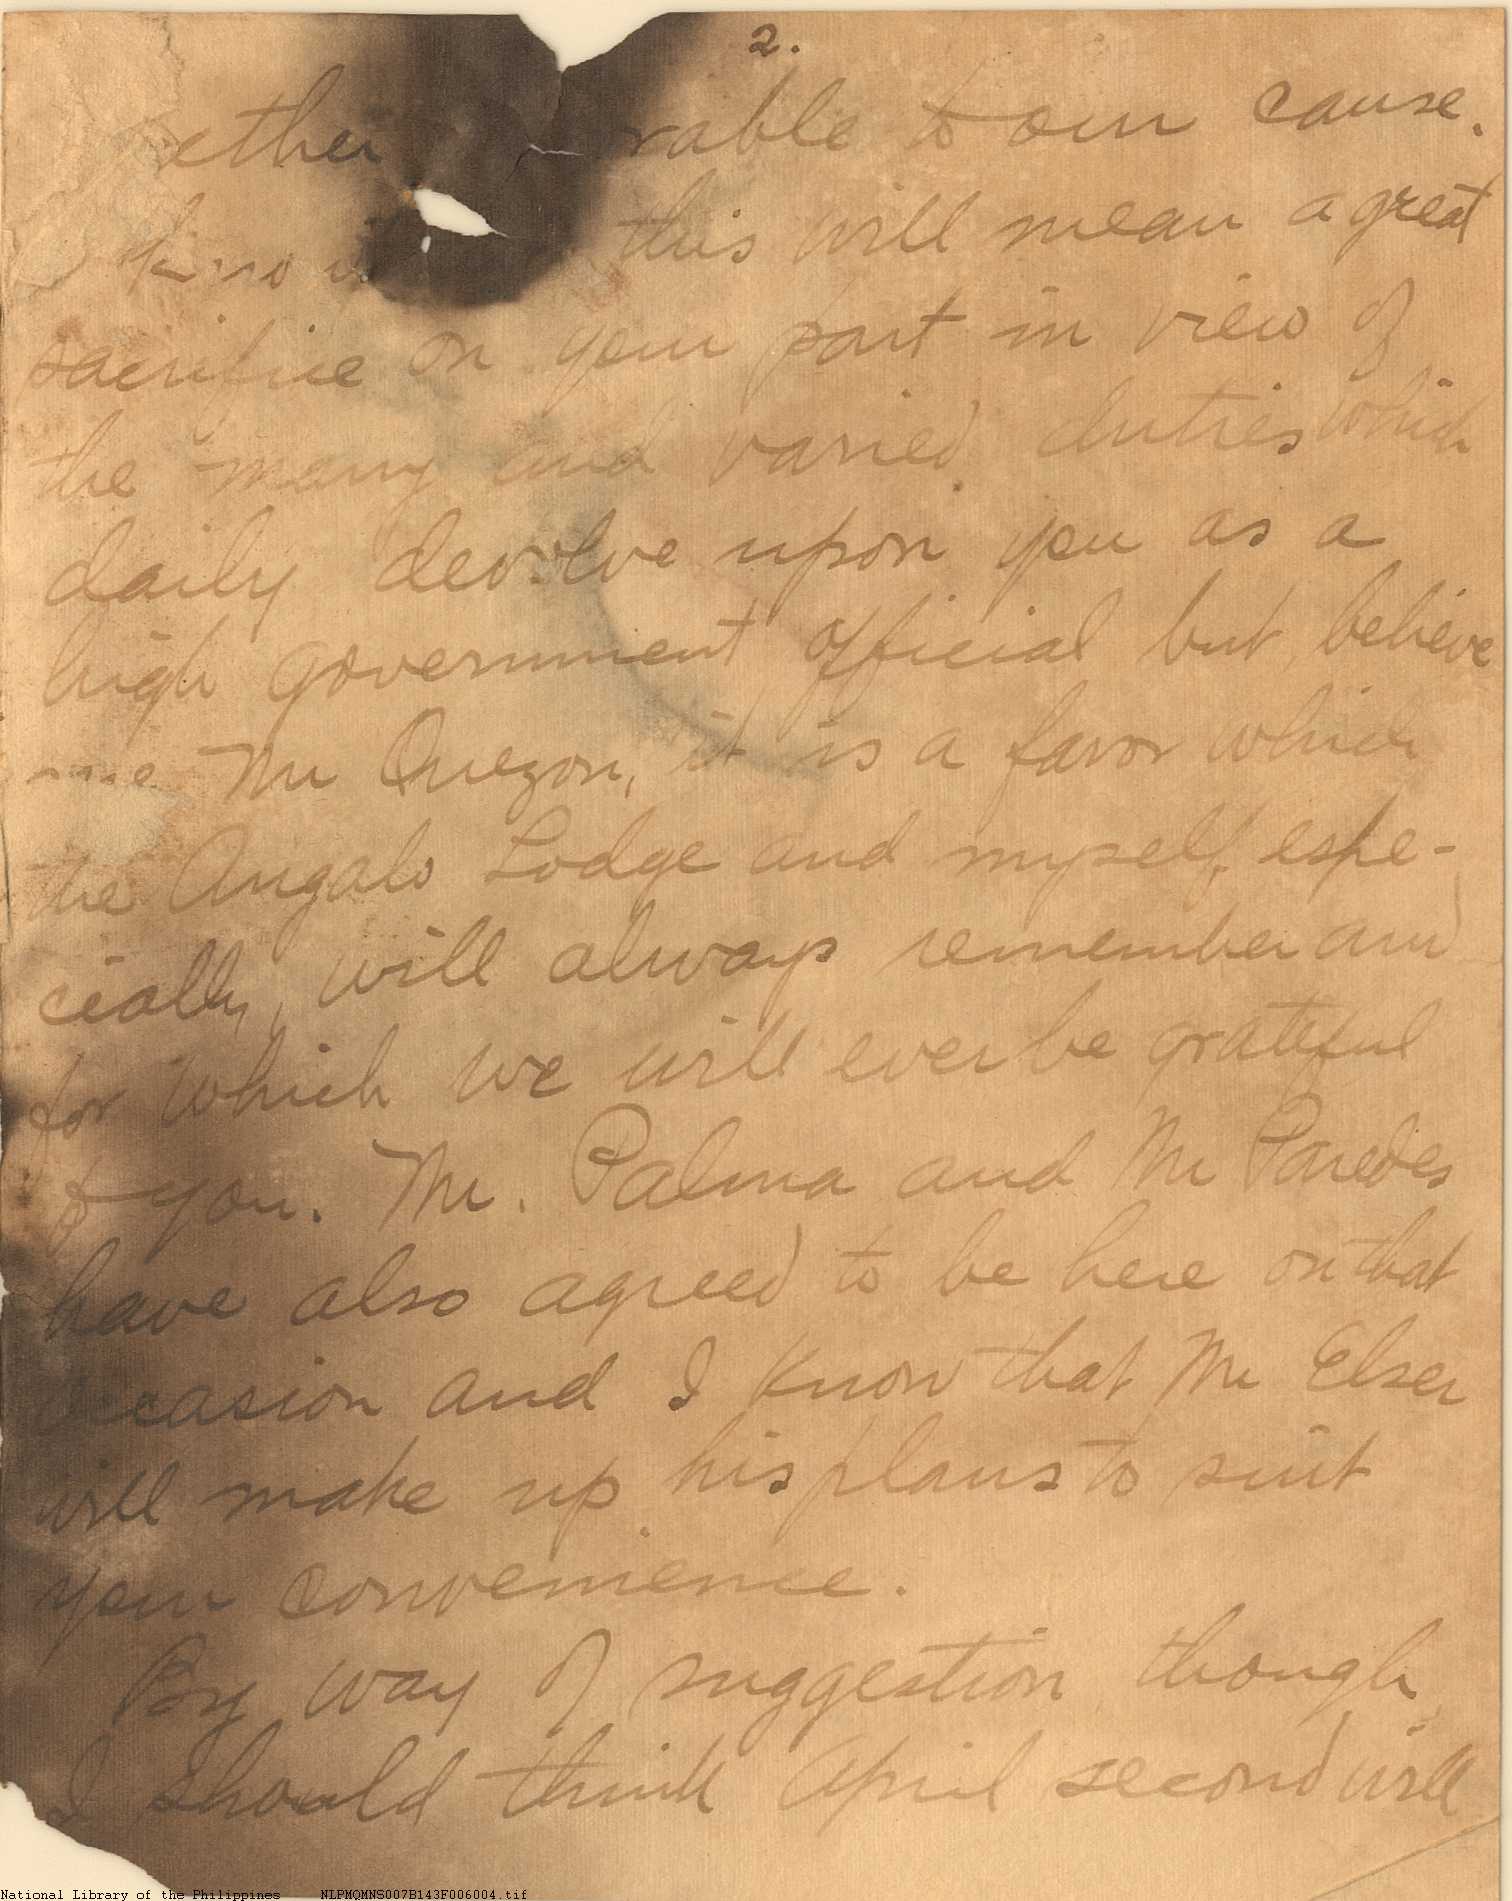 2.
ether rable to our cause.
this will mean a great
sacrifice on your part in view of
the many and varied duties which
daily devolve upon you as a
high government official but, believe
me Mr Quezon, it is a favor which
the Angalo Lodge and myself, espe-
cially, will always remember and
for which we will ever be grateful
to you. Mr. Palma and Mr Paredes
have also agreed to be here on that
occasion and I know that Mr Elser
will make up his plans to suit
your convenience.
By way of suggestion, though,
I should think April second will
National Library of the Philippines NLPMQMNS007B143F006004.tif